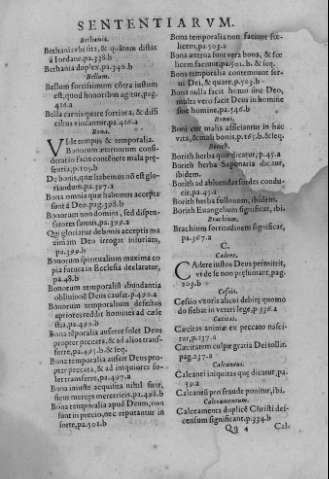 SENTENTIARVM.
Bethania.
Bethania vbi sita, & quãtum distat
à Iordane, pa.338.b
Bethania duplex. pa.340.b
Bellum.
Bellum fortissimum côtra iustum
est, quod honoribus agitur, pag.
416.a
Bella carnis quare fortiora, & difficilius
vincantur. pa.416.a
Bona.
Vtile tempus & temporalia.
Bonorum æternorum consideratio
facit contenere mala presentia,
p.109.b
De bonis, quæ habemus nõ est gloriandum.
pa.387.a
Bona omnia quæ habemus accepta
sunt à Deo. pag.308.b
Bonorum non domini, sed dispensatores
sumus, pa.399.a
Qui gloriatur de bonis acceptis maximam
Deo irrogat iniuriam,
pa.399.b
Bonorum spiritualium maxima copia
futura in Ecclesia declaratur,
pa.48.b
Bonorum temporaliũ abundantia
obliuionis Dei causa. p.490.a
Bonorum temporalium defectus
aptiores reddit homines ad cælestia,
pa.490.b
Bona temporalia auferre solet Deus
propter peccata, & ad alios transferre,
pa.495.b & seq.
Bona temporalia aufert Deus propter
peccata, & ad iniquiores solet
transferre, pa.497.a
Bona iniuste acquisita nihil sunt,
sicut merces meretricis. pa.498.b
Bona temporalia apud Deum, non
sunt in precio, nec reputantur in
sorte, pa.501.b
Bona temporalia non faciunt fœlicem,
pa.503.a
Bona æterna sunt vera bona, & fœlicem
faciunt, pa.501.b. & seq.
Bona temporalia contemnunt serui
Dei, & quare, p.503.b
Bona nulla facit homo sine Deo,
multa vero facit Deus in homine
sine homine, pa.546.b
Bonus.
Boni cur malis afficiantur in hac
vita, & mali bonis, p.165.b. & seq.
Borith.
Borith herba quæ dicatur, p.45.a
Borith herba Saponaria dicitur,
ibidem.
Borith ad abluendas sordes conducit,
pa.45.a
Borith herba fullonum, ibidem.
Borith Euangelium significat, ibi.
Brachium.
Brachium fortitudinem significat,
pa.367.a
C.
Cadere.
Cadere iustos Deus permittit,
vt de se non præsumant, pag.
205.b
Cessio.
Cessio vxoris alicui debitę quomodo
fiebat in veteri lege, p.336.a
Cæcitas.
Cæcitas animæ ex peccato nascitur,
p.137.a
Cæcitatem culpæ gratia Dei tollit.
pag.237.a
Calcaneus.
Calcanei iniquitas quę dicatur, pa.
39.a
Calcaneus pro fraude ponitur, ibi.
Calceamentum.
Calceamenta duplicē Christi descensum
significant. p.334.b
Qq 4 Calc